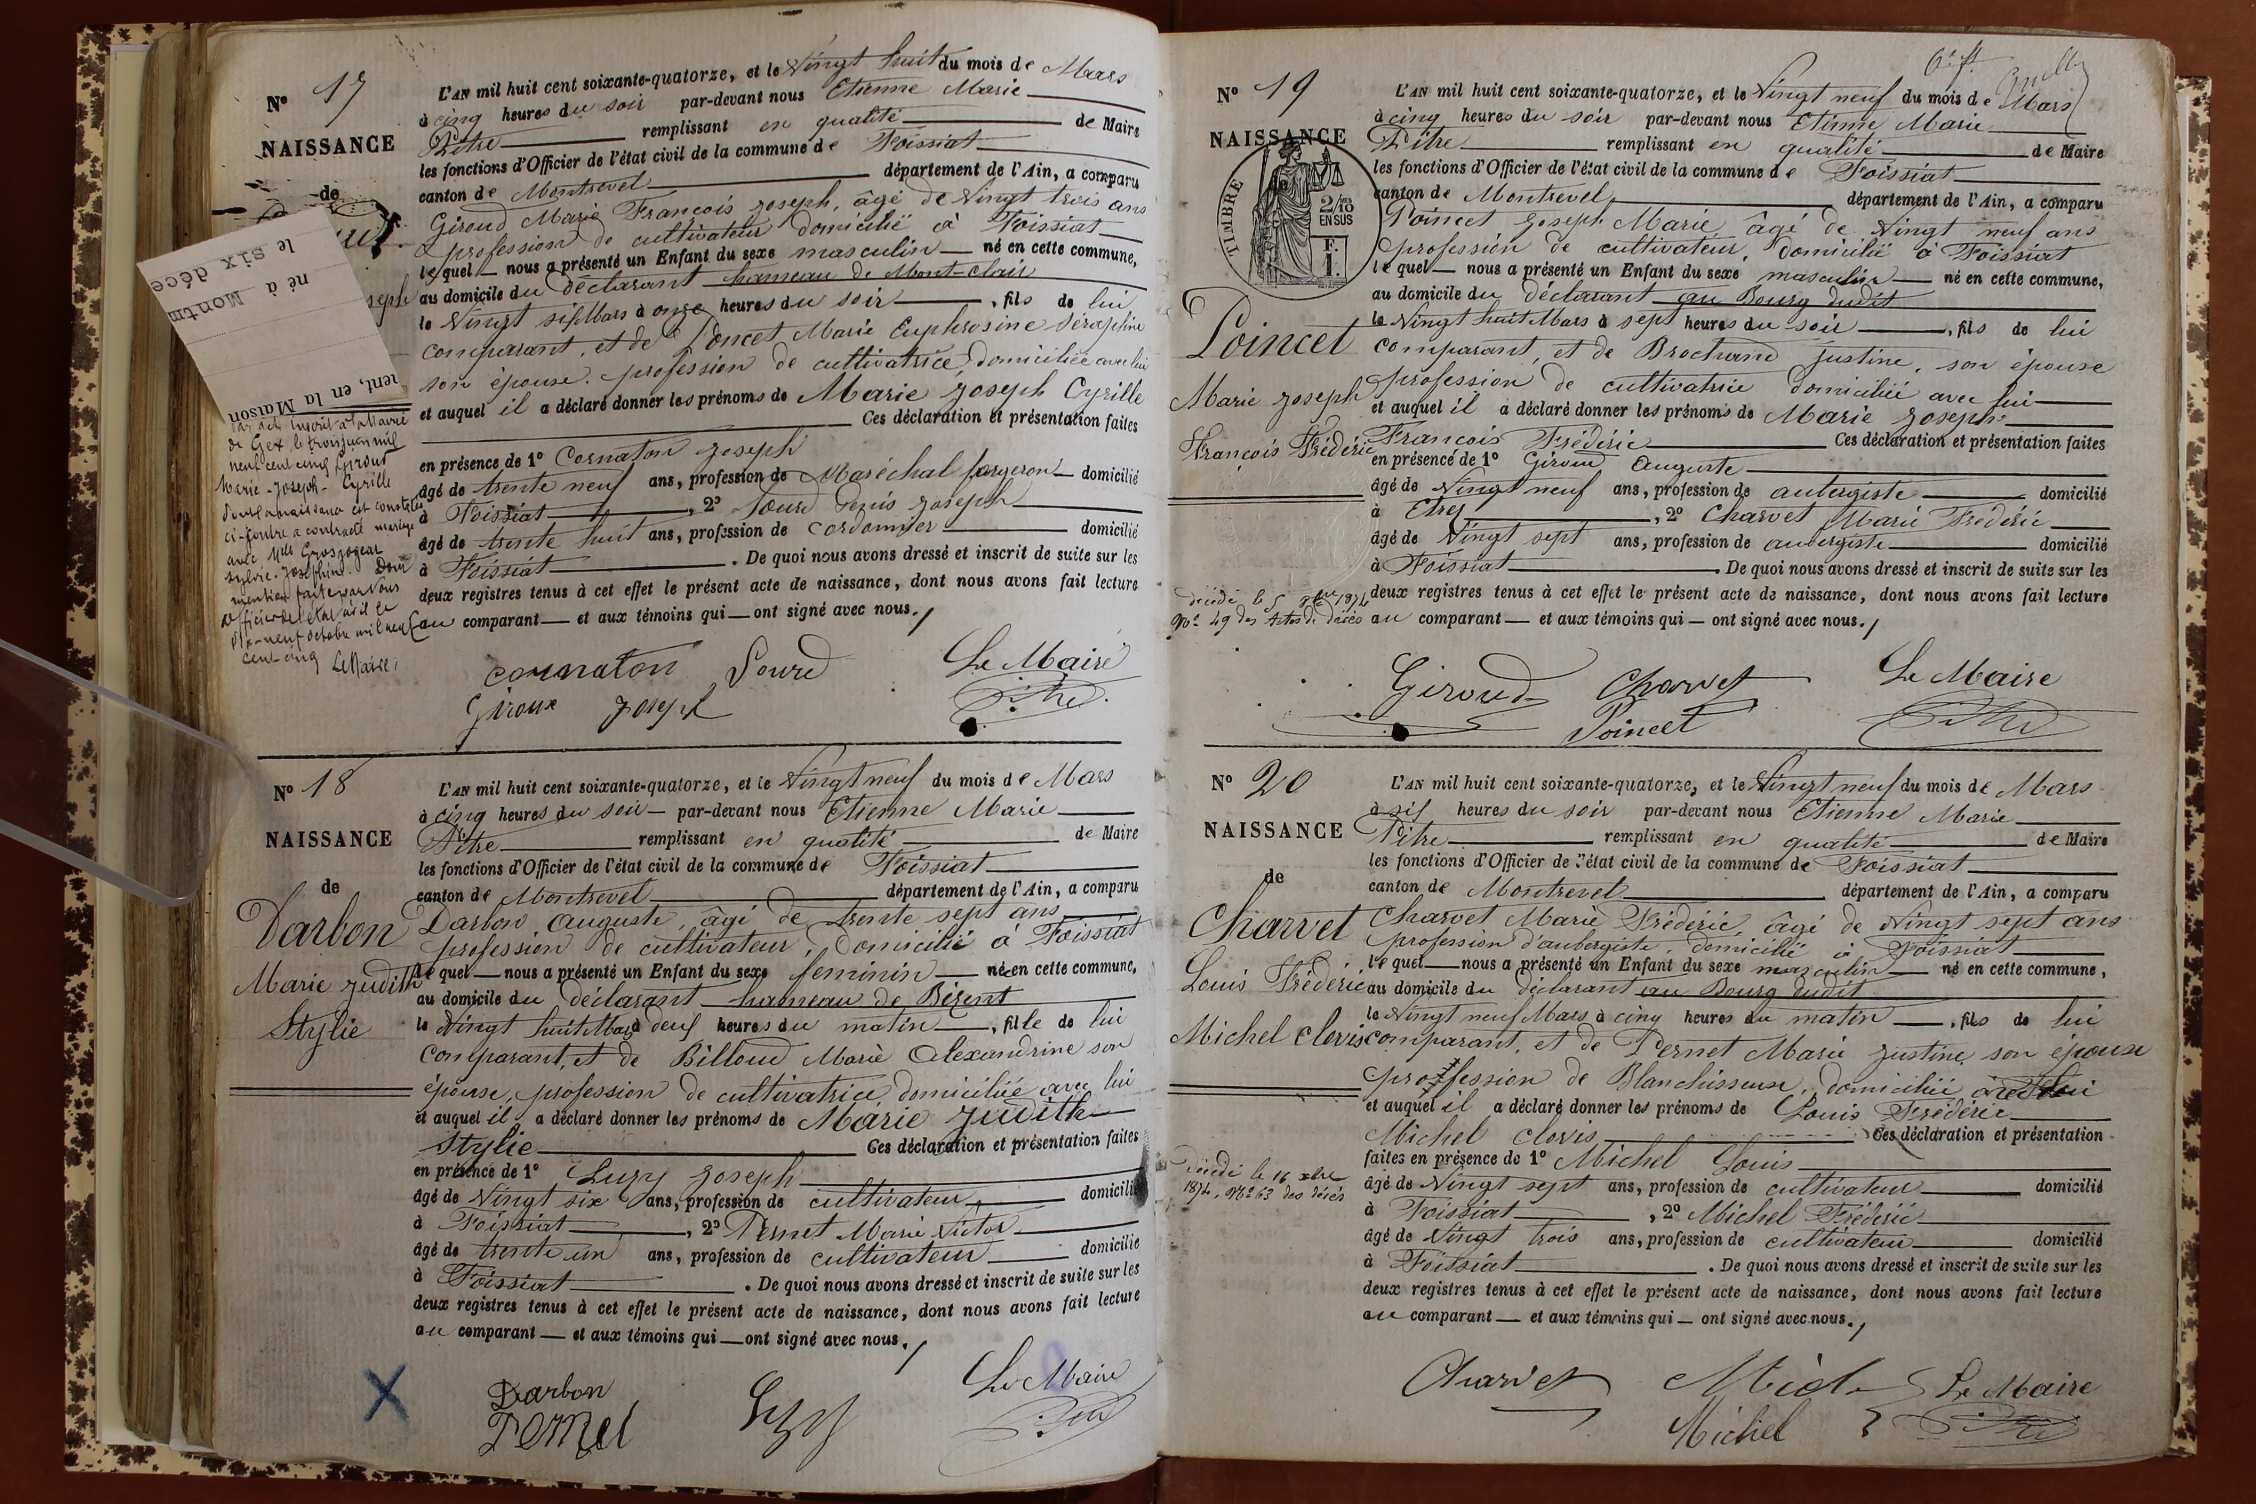 N° 17
NAISSANCE
de
L'AN mil huit cent soixante-quatorze, et le Vingt huit du mois de Mars
à cinq heures du soir par-devant nous Etienne Marie
Pitre remplissant en qualité de Maire
les fonctions d'Officier de l'état civil de la commune de Foissiat
canton de Montrevel département de l'Ain, a comparu
Giroud Marie François Joseph, âgé de Vingt trois ans
profession de cultivateur domicilié à Foissiat
le quel nous a présenté un Enfant du sexe masculin né en cette commune,
au domicile du déclarant hameau de Mont-clair
le Vingt six Mars à onze heures du soir, fils de lui
comparant, et de Poncet Marie Euphrosine Séraphine
son épouse. profession de cultivatrice, domiciliée avec lui
et auquel il a déclaré donner les prénoms de Marie Joseph Cyrille
Ces déclaration et présentation faites
en présence de 1° Cornaton Joseph
âgé de trente neuf ans, profession de Maréchal forgeron domicilié
à Foissiat, 2° Sourd Denis Joseph
âgé de trente huit ans, profession de cordonnier domicilié
à Foissiat. De quoi nous avons dressé et inscrit de suite sur les
deux registres tenus à cet effet le présent acte de naissance, dont nous avons fait lecture
au comparant et aux témoins qui ont signé avec nous.
cornaton Sourd Le Maire
Giroux Joseph Pitre
le six déce
né à Montm
ment, en la Maison
seph
de Gex le trois juin mil
neuf cent cinq Giroud
Marie-Joseph-Cyrille
dont la naissance est constatée
ci-contre a contracté mariage
avec Mlle Grosjogeat
Sylvie-Joséphine. Dont
mention faite par Nous
officier de l'état civil le
dix-neuf octobre mil neuf
cent cinq Le Maire,
N° 18
NAISSANCE
de
Darbon
Marie Judith
Stylie
L'AN mil huit cent soixante-quatorze, et le Vingt neuf du mois de Mars
à cinq heures du soir par-devant nous Etienne Marie
Pitre remplissant en qualité de Maire
les fonctions d'Officier de l'état civil de la commune de Foissiat
canton de Montrevel département de l'Ain, a comparu
Darbon Auguste, âgé de trente sept ans
profession de cultivateur, domicilié à Foissiat
le quel nous a présenté un Enfant du sexe feminin né en cette commune,
au domicile du déclarant hameau de Bézent
le Vingt huit Mars à deux heures du matin, fille de lui
comparant, et de Billoud Marie Alexandrine son
épouse, profession de cultivatrice, domiciliée avec lui
et auquel il a déclaré donner les prénoms de Marie Judith
Stylie Ces déclaration et présentation faites
en présence de 1° Luzy Joseph
âgé de Vingt six ans, profession de cultivateur domicilié
à Foissiat, 2° Pernet Marie Victor
âgé de trente un ans, profession de cultivateur domicilié
à Foissiat. De quoi nous avons dressé et inscrit de suite sur les
deux registres tenus à cet effet le présent acte de naissance, dont nous avons fait lecture
au comparant et aux témoins qui ont signé avec nous.
Darbon Luzy Le Maire
Pernet Pitre
N° 19
NAISSANCE
TIMBRE
2/10 EN SUS
F.
1.
Poincet
Marie Joseph
François Frédéric
L'AN mil huit cent soixante-quatorze, et le Vingt neuf du mois de Mars
à cinq heures du soir par-devant nous Etienne Marie
Pitre remplissant en qualité de Maire
les fonctions d'Officier de l'état civil de la commune de Foissiat
canton de Montrevel département de l'Ain, a comparu
Poincet Joseph Marie, âgé de Vingt neuf ans
profession de cultivateur, domicilié à Foissiat
le quel nous a présenté un Enfant du sexe masculin né en cette commune,
au domicile du déclarant au Bourg dudit
le Vingt huit Mars à sept heures du soir, fils de lui
comparant, et de Brochand Justine, son épouse
profession de cultivatrice domiciliée avec lui
et auquel il a déclaré donner les prénoms de Marie Joseph
François Frédéric Ces déclaration et présentation faites
en présence de 1° Giroud Auguste
âgé de Vingt neuf ans, profession de aubergiste domicilié
à Etrez, 2° Charvet Marie Frédéric
âgé de Vingt sept ans, profession de aubergiste domicilié
à Foissiat. De quoi nous avons dressé et inscrit de suite sur les
deux registres tenus à cet effet le présent acte de naissance, dont nous avons fait lecture
au comparant et aux témoins qui ont signé avec nous.
décédé le 5 1874
N° 49 des Actes de décès
Giroud Charvet Le Maire
Poincet Pitre
N° 20
NAISSANCE
de
Charvet
Louis Frédéric
Michel Clovis
L'AN mil huit cent soixante-quatorze, et le Vingt neuf du mois de Mars
à six heures du soir par-devant nous Etienne Marie
Pitre remplissant en qualité de Maire
les fonctions d'Officier de l'état civil de la commune de Foissiat
canton de Montrevel département de l'Ain, a comparu
Charvet Marie Frédéric, âgé de Vingt sept ans
profession d'aubergiste, domicilié à Foissiat
le quel nous a présenté un Enfant du sexe masculin né en cette commune,
au domicile du déclarant au Bourg dudit
le Vingt neuf Mars à cinq heures du matin, fils de lui
comparant, et de Pernet Marie Justine son épouse
profession de Blanchisseuse, domiciliée avec lui
et auquel il a déclaré donner les prénoms de Louis Frédéric
Michel Clovis Ces déclaration et présentation
faites en présence de 1° Michel Louis
âgé de Vingt sept ans, profession de cultivateur domicilié
à Foissiat, 2° Michel Frédéric
âgé de Vingt trois ans, profession de cultivateur domicilié
à Foissiat. De quoi nous avons dressé et inscrit de suite sur les
deux registres tenus à cet effet le présent acte de naissance, dont nous avons fait lecture
au comparant et aux témoins qui ont signé avec nous.
Décédé le 16 xbre
1874, N° 63 des décès
Charvet Michel Le Maire
Michel Pitre